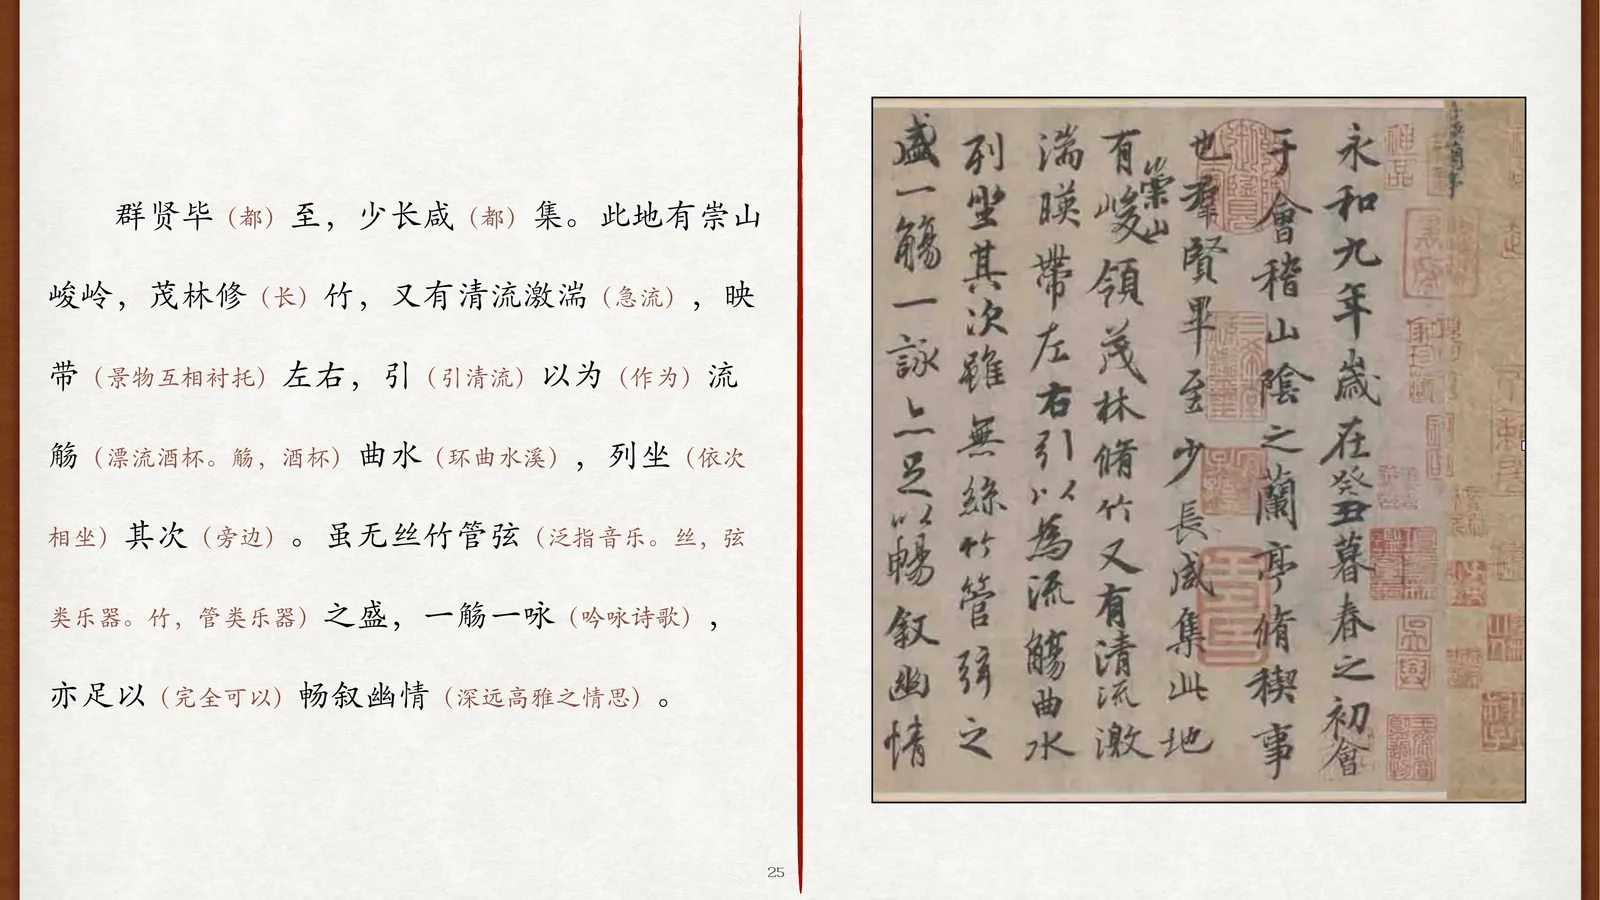 群贤毕（都）至，少长咸（都）集。此地有崇山
峻岭，茂林修（长）竹，又有清流激湍（急流），映
带（景物互相衬托）左右，引（引清流）以为（作为）流
觞（漂流酒杯。觞，酒杯）曲水（环曲水溪），列坐（依次
相坐）其次（旁边）。虽无丝竹管弦（泛指音乐。丝，弦
类乐器。竹，管类乐器）之盛，一觞一咏（吟咏诗歌），
亦足以（完全可以）畅叙幽情（深远高雅之情思）。
25
永和九年歲在癸丑暮春之初會
于會稽山陰之蘭亭脩稧事
也羣賢畢至少長咸集此地
有崇山峻領茂林脩竹又有清流激
湍暎帶左右引以為流觴曲水
列坐其次雖無絲竹管弦之
盛一觴一詠亦足以暢叙幽情